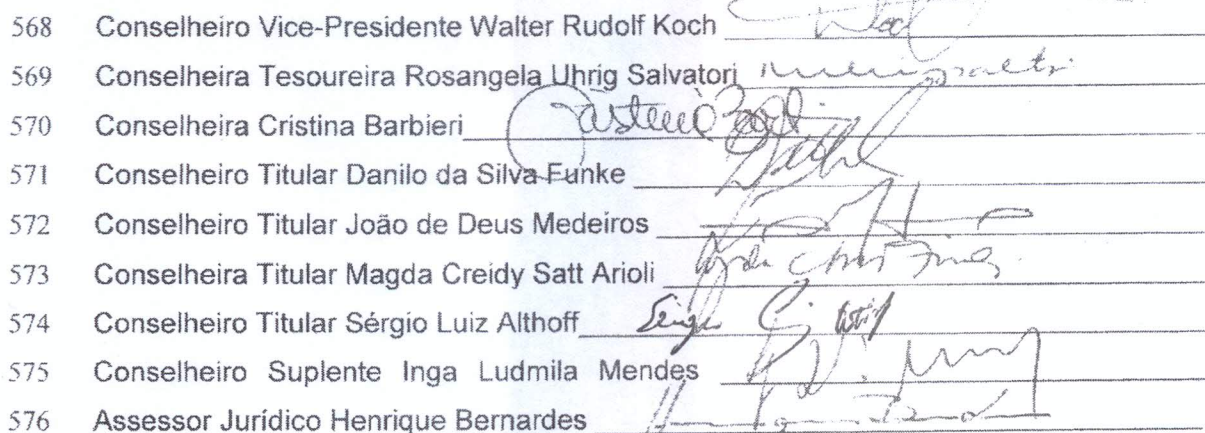 568 Conselheiro Vice-Presidente Walter Rudolf Koch
569 Conselheira Tesoureira Rosangela Uhrig Salvatori
570 Conselheira Cristina Barbieri
571 Conselheiro Titular Danilo da Silva Funke
572 Conselheiro Titular João de Deus Medeiros
573 Conselheira Titular Magda Creidy Satt Arioli
574 Conselheiro Titular Sérgio Luiz Althoff
575 Conselheiro Suplente Inga Ludmila Mendes
576 Assessor Jurídico Henrique Bernardes